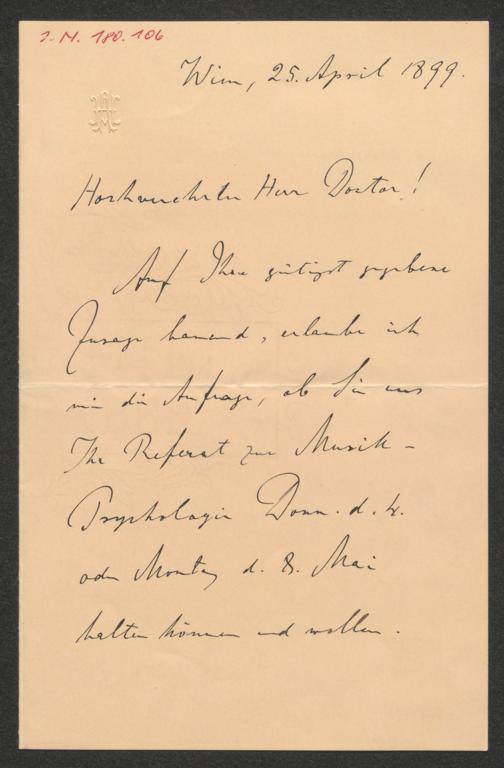 I.N. 180.106
Wien, 25. April 1899.
Hochverehrter Herr Doctor!
Auf Ihre gütigst gegebene
Zusage bauend, erlaube ich
mir die Anfrage, ob Sie uns
Ihr Referat zur Musik-
Psychologie Donn. d. 4.
oder Montag d. 8. Mai
halten können und wollen.